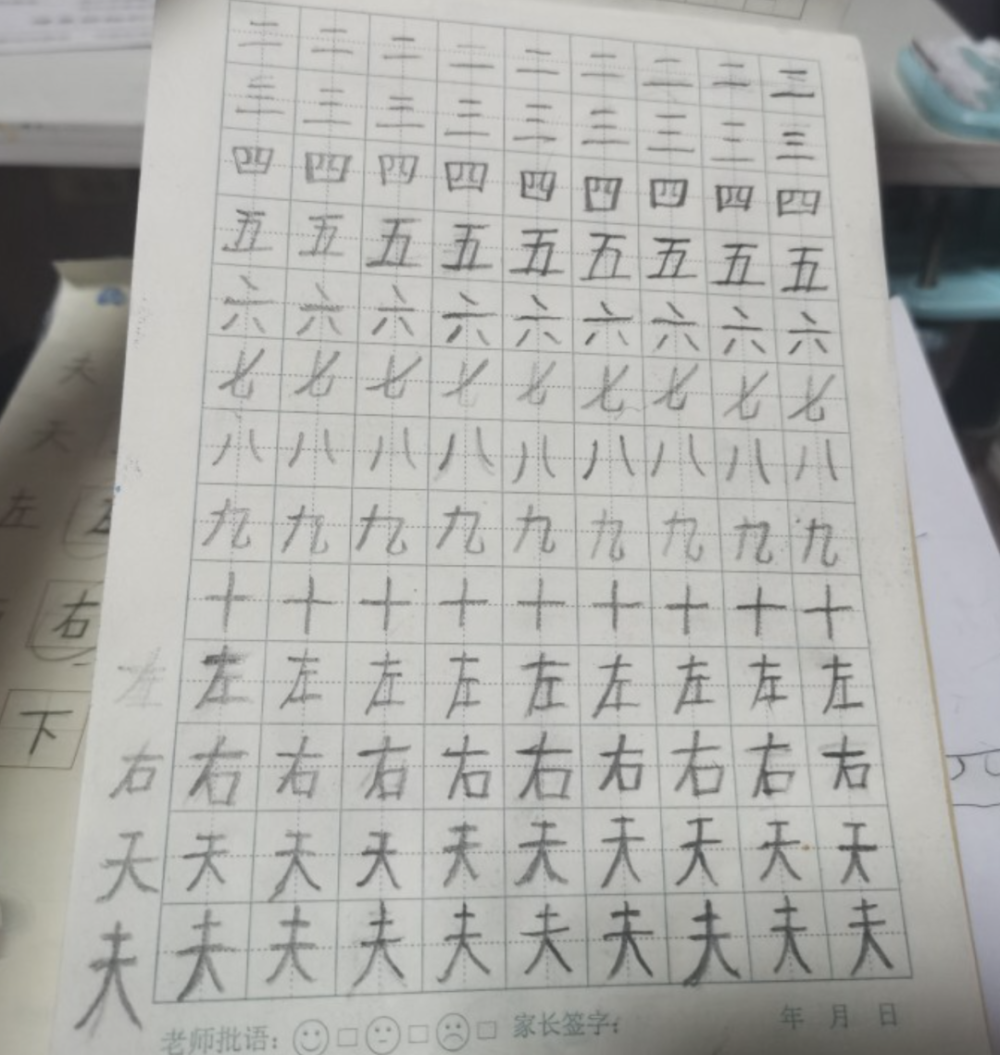 二 二 二 二 二 二 二 二 三
三 三 三 三 三 三 三 三 三
四 四 四 四 四 四 四 四 四
五 五 五 五 五 五 五 五 五
六 六 六 六 六 六 六 六 六
七 七 七 七 七 七 七 七 七
八 八 八 八 八 八 八 八 八
九 九 九 九 九 九 九 九 九
十 十 十 十 十 十 十 十 十
左 左 左 左 左 左 左 左 左 左
右 右 右 右 右 右 右 右 右 右
天 天 天 天 天 天 天 天 天 天
夫 夫 夫 夫 夫 夫 夫 夫 夫 夫
老师批语: 家长签字: 年 月 日
夫
天
左
右
下